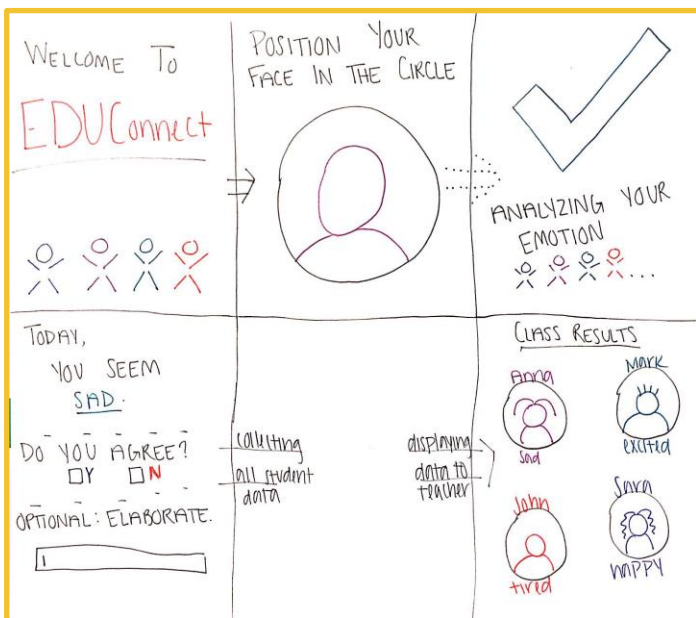 WELCOME TO
EDUConnect
POSITION YOUR
FACE IN THE CIRCLE
ANALYZING YOUR
EMOTION
...
TODAY,
YOU SEEM
SAD.
DO YOU AGREE?
☐Y ☐N
OPTIONAL: ELABORATE.
collecting
all student
data
displaying
data to
teacher
CLASS RESULTS
Anna
sad
Mark
excited
John
tired
Sara
HAPPY